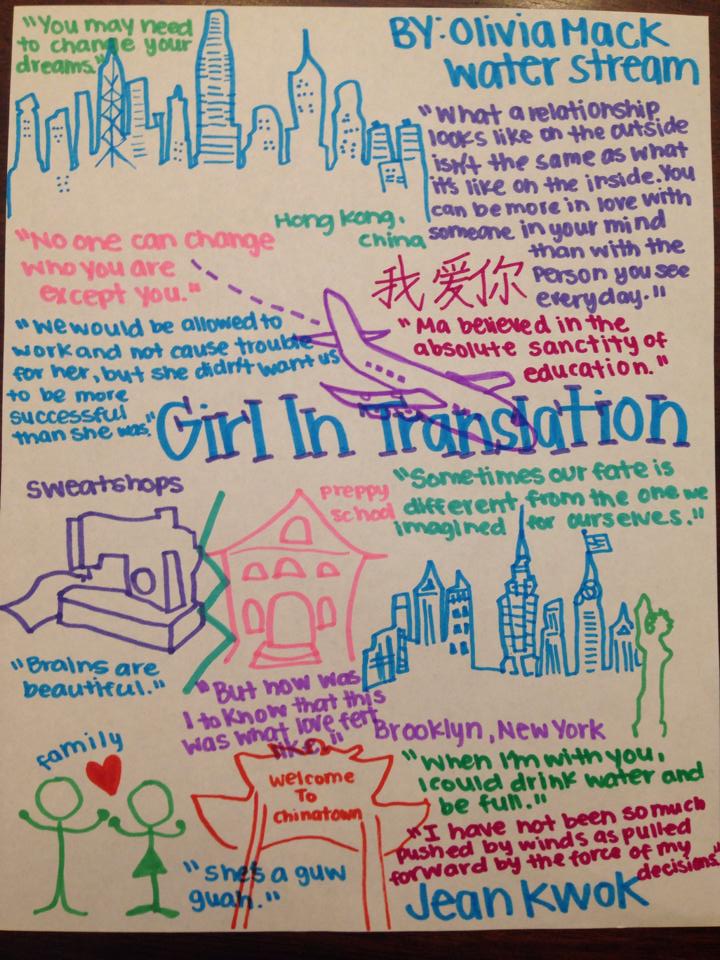 "You may need
to change your
dreams."
BY: Olivia Mack
water stream
"What a relationship
looks like on the outside
isn't the same as what
it's like on the inside. You
can be more in love with
someone in your mind
than with the
person you see
everyday."
Hong Kong,
China
"No one can change
who you are
except you."
我爱你
"We would be allowed to
work and not cause trouble
for her, but she didn't want us
to be more
successful
than she was."
"Ma believed in the
absolute sanctity of
education."
Girl In Translation
sweatshops
preppy
school
"Sometimes our fate is
different from the one we
imagined for ourselves."
"Brains are
beautiful."
"But how was
I to know that this
was what love felt
like?"
Brooklyn, New York
family
Welcome
To
Chinatown
"When I'm with you,
I could drink water and
be full."
"I have not been so much
pushed by winds as pulled
forward by the force of my
decisions."
"She's a guw
guah."
Jean Kwok